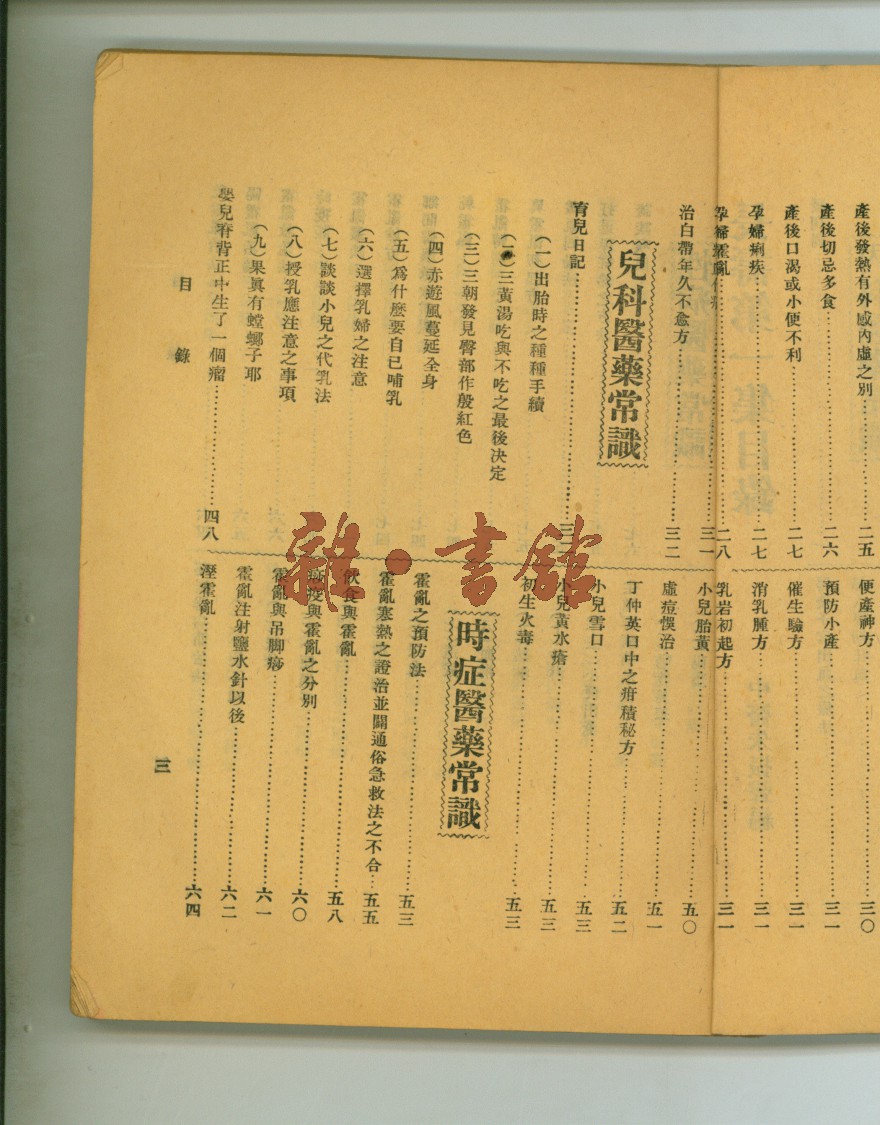 產後發熱有外感內虛之別……二五
產後切忌多食……二六
產後口渴或小便不利……二七
孕婦痢疾……二七
孕婦霍亂……二八
治白帶年久不愈方……三一
兒科醫藥常識
育兒日記……三二
(一)出胎時之種種手續
(二)三黃湯吃與不吃之最後決定
(三)三朝發見臀部作殷紅色
(四)赤遊風蔓延全身
(五)爲什麼要自己哺乳
(六)選擇乳婦之注意
(七)談談小兒之代乳法
(八)授乳應注意之事項
(九)果眞有螳螂子耶
嬰兒脊背正中生了一個瘤……四八
便產神方……三〇
預防小產……三一
催生驗方……三一
消乳腫方……三一
乳岩初起方……三一
小兒胎黃……五〇
虛痘悞治……五一
丁仲英口中之疳積秘方……五二
小兒雪口……五三
小兒黃水瘡……五三
初生火毒……五三
時症醫藥常識
霍亂之預防法……五三
霍亂寒熱之證治並闢通俗急救法之不合……五五
飲食與霍亂……五八
疫與霍亂之分別……六〇
霍亂與吊脚痧……六一
霍亂注射鹽水針以後……六二
溼霍亂……六四
目錄
三
雜·書館